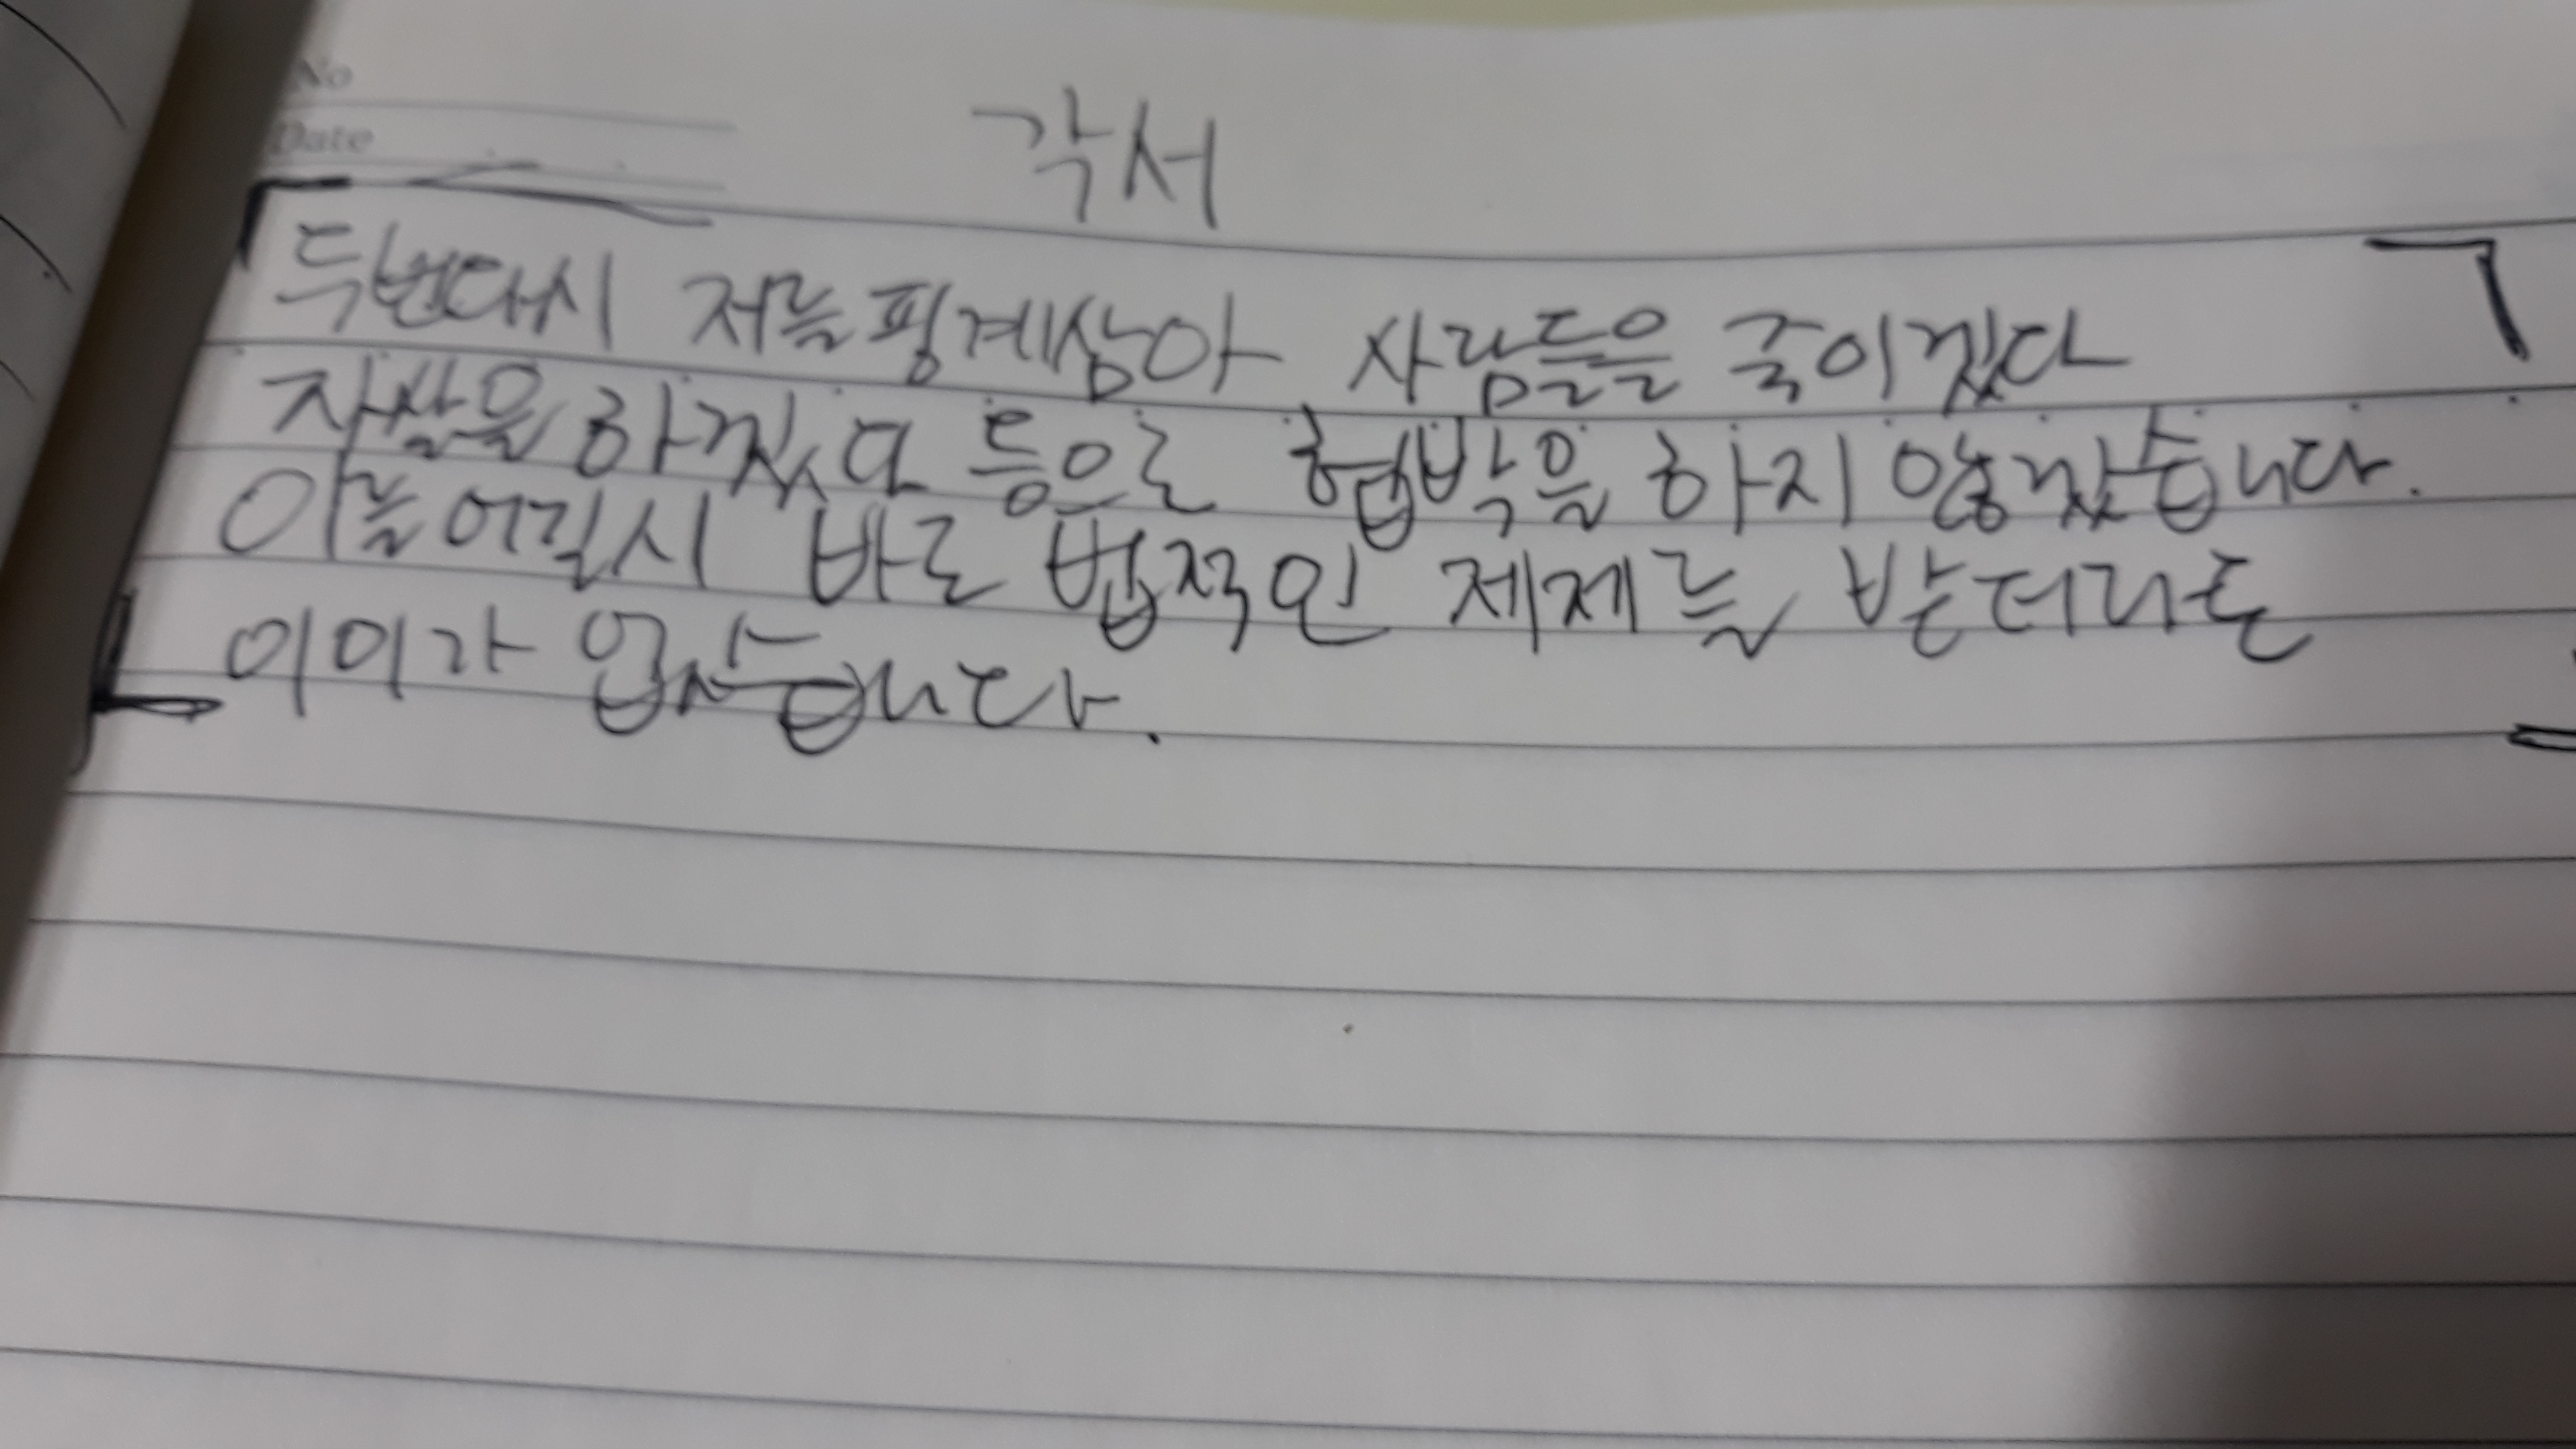 No
Date
각서
두번다시 저를 핑계삼아 사람들을 죽이겠다
자살을 하겠다 등으로 협박을 하지 않겠습니다.
이를어길시 바로 법적인 제제를 받더라도
이이가 없습니다.